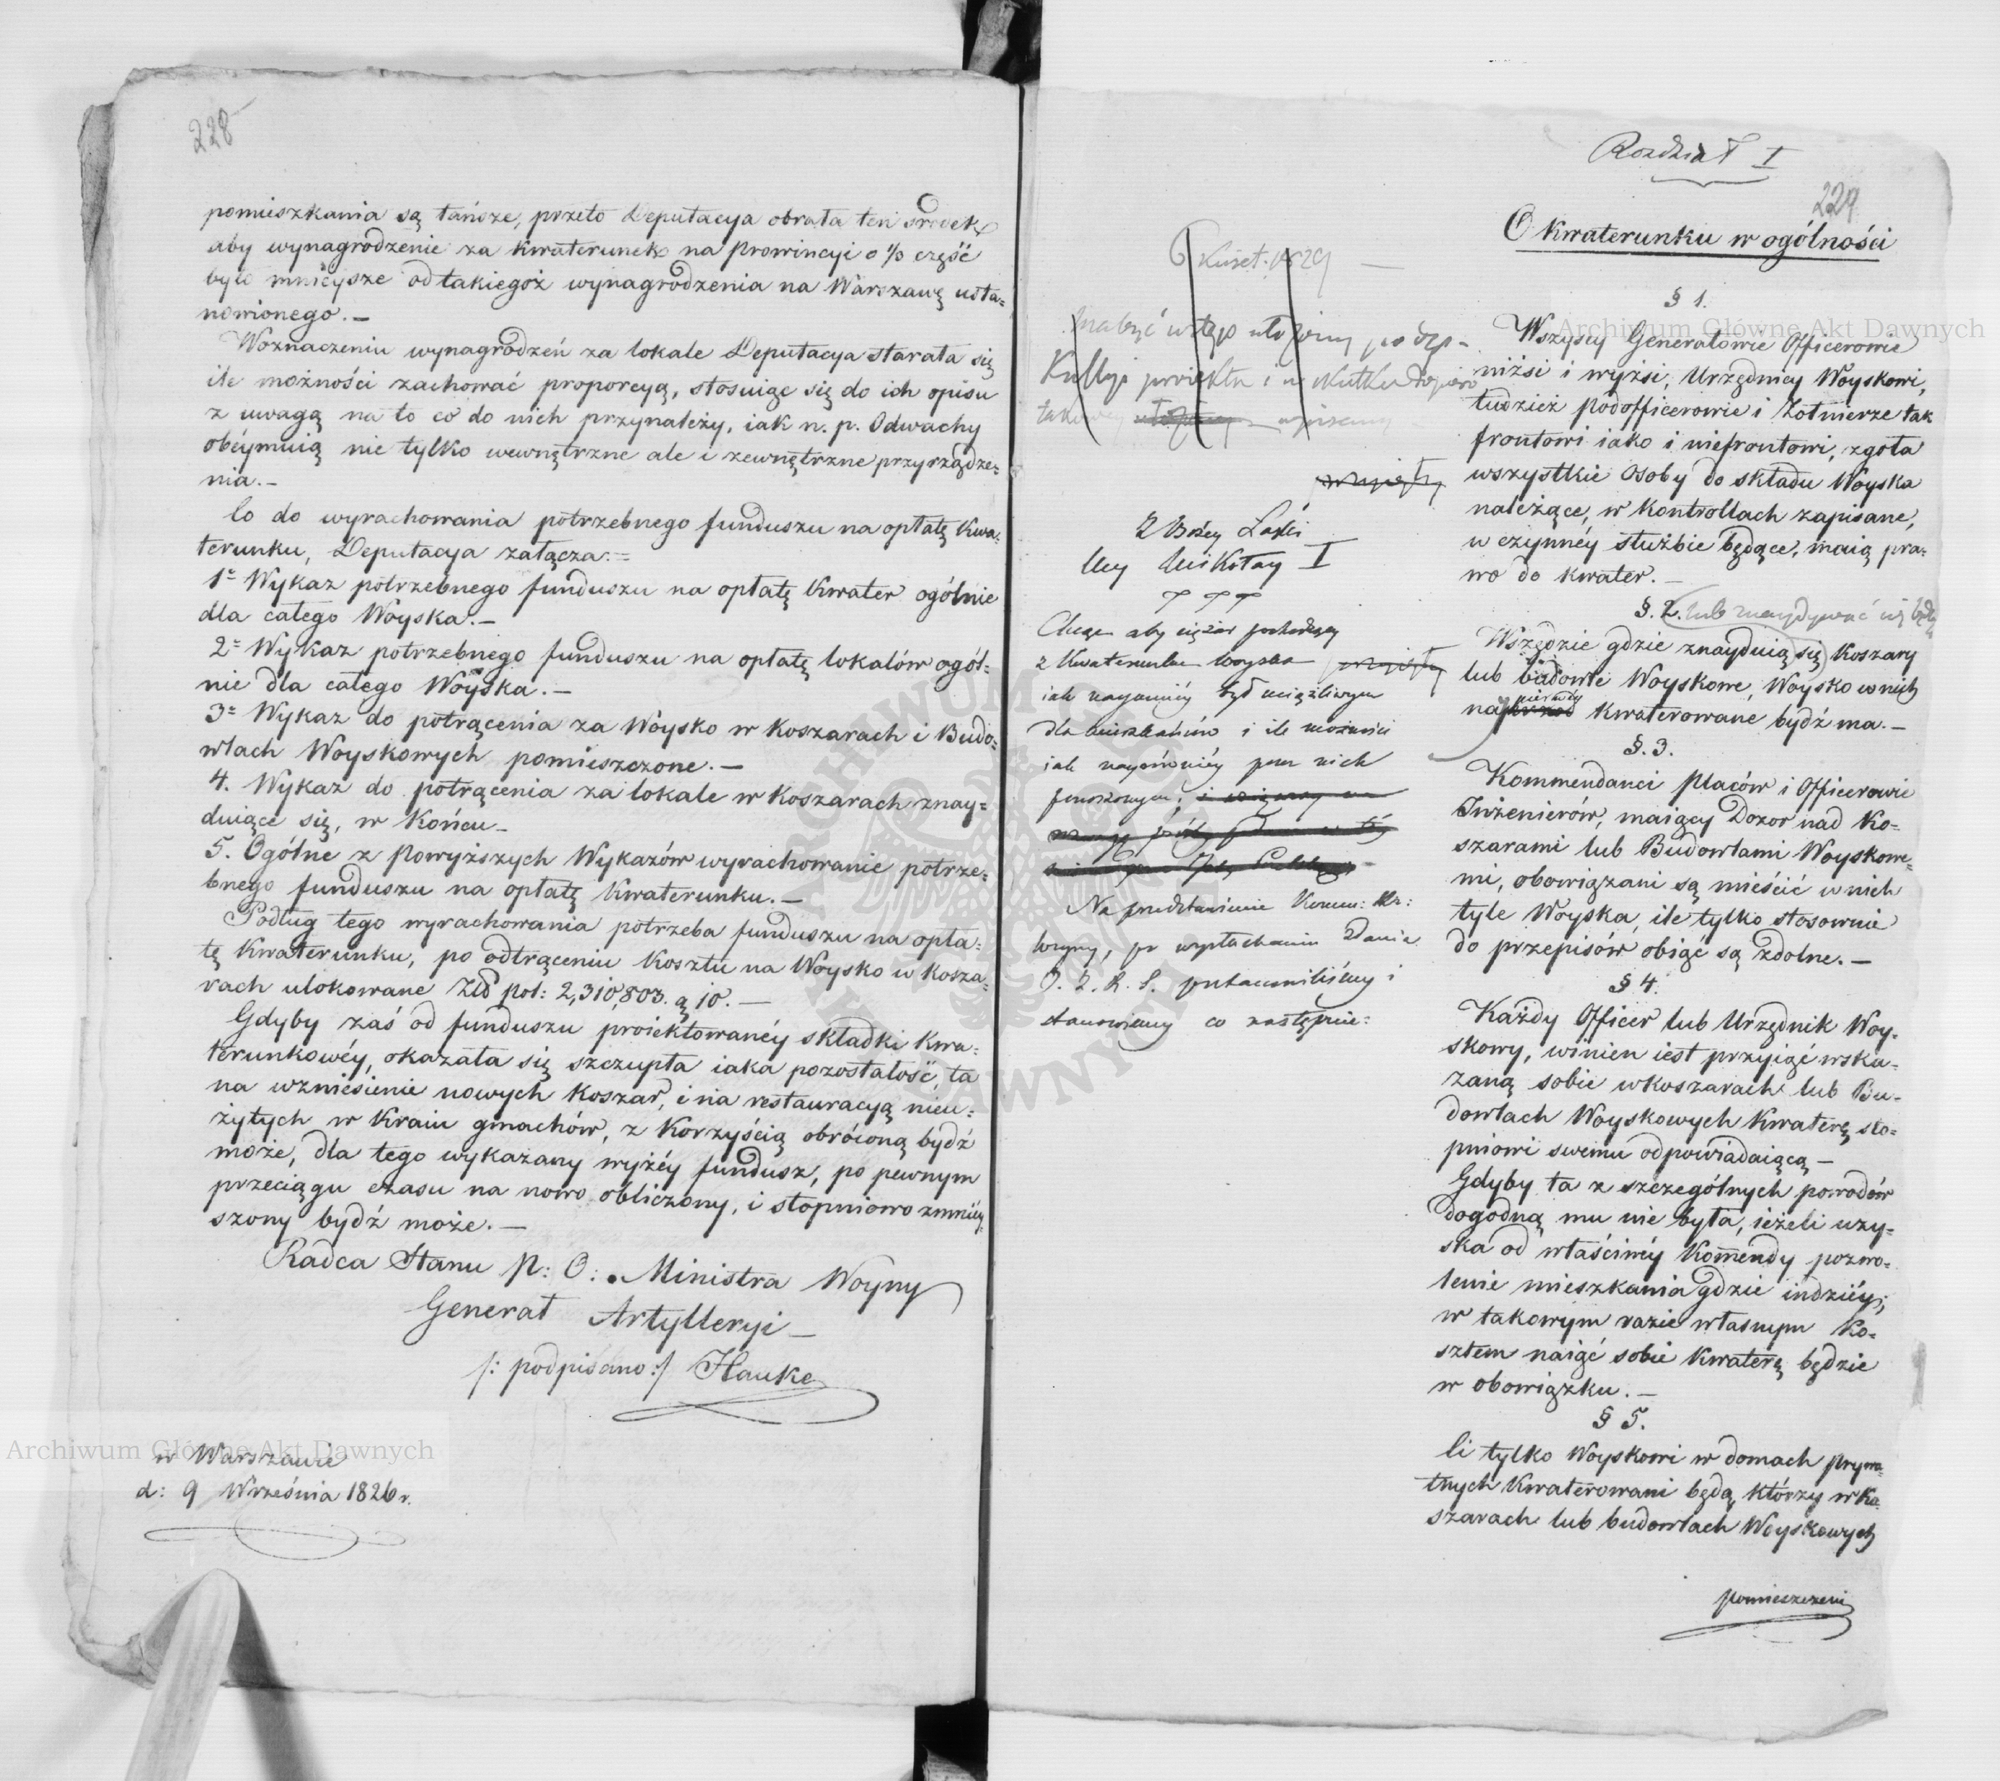 228
pomieszkania są tańsze, przeto Deputacya obrała ten srodek
aby wynagrodzenie za kwaterunek na prowincyi o 1/3 część
było mnieysze od takiegoż wynagrodzenia na Warszawę usta=
nowionego.—
W oznaczeniu wynagrodzeń za lokale Deputacya starała się
ile możności zachować proporcyą, stosuiąc się do ich opisu
z uwagą na to co do nich przynależy, iak n. p. Odwachy
obéymuią nie tylko wewnętrzne ale i zewnętrzne przyrządze=
nia.—
Co do wyrachowania potrzebnego funduszu na opłatę kwa=
terunku, Deputacya załącza:=
1= Wykaz potrzebnego funduszu na opłatę kwater ogólnie
dla całego Woyska.—
2= Wykaz potrzebnego funduszu na opłatę lokalów ogól=
nie dla całego Woyska.—
3= Wykaz do potrącenia za Woysko w Koszarach i Budo=
wlach Woyskowych pomieszczone.—
4. Wykaz do potrącenia za lokale w Koszarach znay=
duiące się, w Końcu—
5. Ogólne z powyższych Wykazów wyrachowanie potrze=
bnego funduszu na opłatę kwaterunku.—
Podług tego wyrachowania potrzeba funduszu na opła=
tę kwaterunku, po odtrąceniu kosztu na Woysko w Kosza=
rach ulokowane Złd pol: 2,310,803. g 10.—
Gdyby zaś od funduszu proiektowanéy składki kwa=
terunkowéy, okazała się szczupła iaka pozostałość, ta
na wzniesienie nowych Koszar, i na restauracyą nieu=
żytych w Kraiu gmachów, z korzyścią obróconą bydź
może, dla tego wykazany wyżéy fundusz, po pewnym
przeciągu czasu na nowo obliczony, i stopniowo zmniéy=
szony bydź może.—
Radca Stanu P: O: Ministra Woyny
Generał Artylleryi—
/: podpisano :/ Hauke
w Warszawie
d: 9 Września 1826 r.
Rozdział I
229
O kwaterunku w ogólności
§ 1.
Wszyscy Generałowie Officerowie
niżsi i wyżsi, Urzędnicy Woyskowi,
tudzież podofficerowie i Żołnierze tak
frontowi iako i niefrontowi, zgoła
wszystkie osoby do składu Woyska
należące, w kontrollach zapisane,
w czynnéy służbie będące, maią pra=
wo do kwater.—
§. 2. lub znaydywać się będą
Wszędzie gdzie znayduią się koszary
lub budowle Woyskowe, Woysko w nich
naypierwéy kwaterowane bydź ma.—
§. 3.
Kommendanci placów i Officerowie
Inżenierów, maiący Dozor nad Ko=
szarami lub Budowlami Woyskowe=
mi, obowiązani są mieścić w nich
tyle Woyska, ile tylko stosownie
do przepisów obiąć są zdolne.—
§ 4.
Każdy Officer lub Urzędnik Woy=
skowy, winien iest przyiąć wska=
zaną sobie w koszarach lub Bu=
dowlach Woyskowych kwaterę sto=
pniowi swemu odpowiadaiącą—
Gdyby ta z szczególnych powodów
dogodną mu nie była, ieżeli uzy=
ska od właściwéy Komendy pozwo=
lenie mieszkania gdzie indziéy;
w takowym razie własnym Ko=
sztem naiąć sobie kwaterę będzie
w obowiązku.—
§ 5.
Ci tylko Woyskowi w domach prywa=
tnych kwaterowani będą, którzy w Ko=
szarach lub budowlach Woyskowych
pomieszczeni
Z Bożey Łaski
My Mikołay I
Chcąc aby ciężar pochodzący
z kwaterunku woyska
iak naymniéy był uciążliwym
dla mieszkańców i ile możności
iak nayrówniéy przez nich
ponoszonym,
Na przedstawienie Komm:
Woyny, po wysłuchaniu Zdania
postanowiliśmy i
stanowiemy co następuie:
Archiwum Główne Akt Dawnych
Archiwum Główne Akt Dawnych